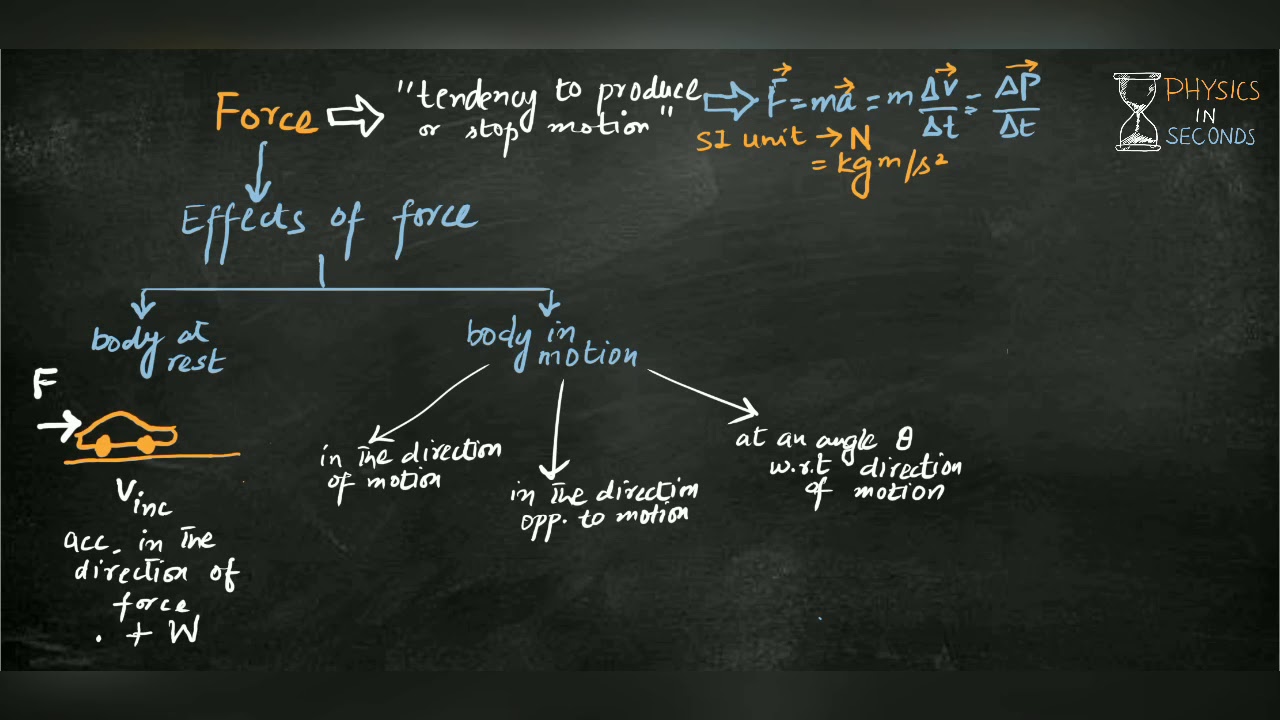 Force ⇒ "tendency to produce or stop motion" ⇒ F⃗ = ma⃗ = m Δv⃗/Δt = ΔP⃗/Δt
SI unit → N
= kg m/s²
PHYSICS
IN
SECONDS
Effects of force
body at
rest
body in
motion
F
V inc
acc. in the
direction of
force
+ W
in the direction
of motion
in the direction
opp. to motion
at an angle θ
w.r.t direction
of motion